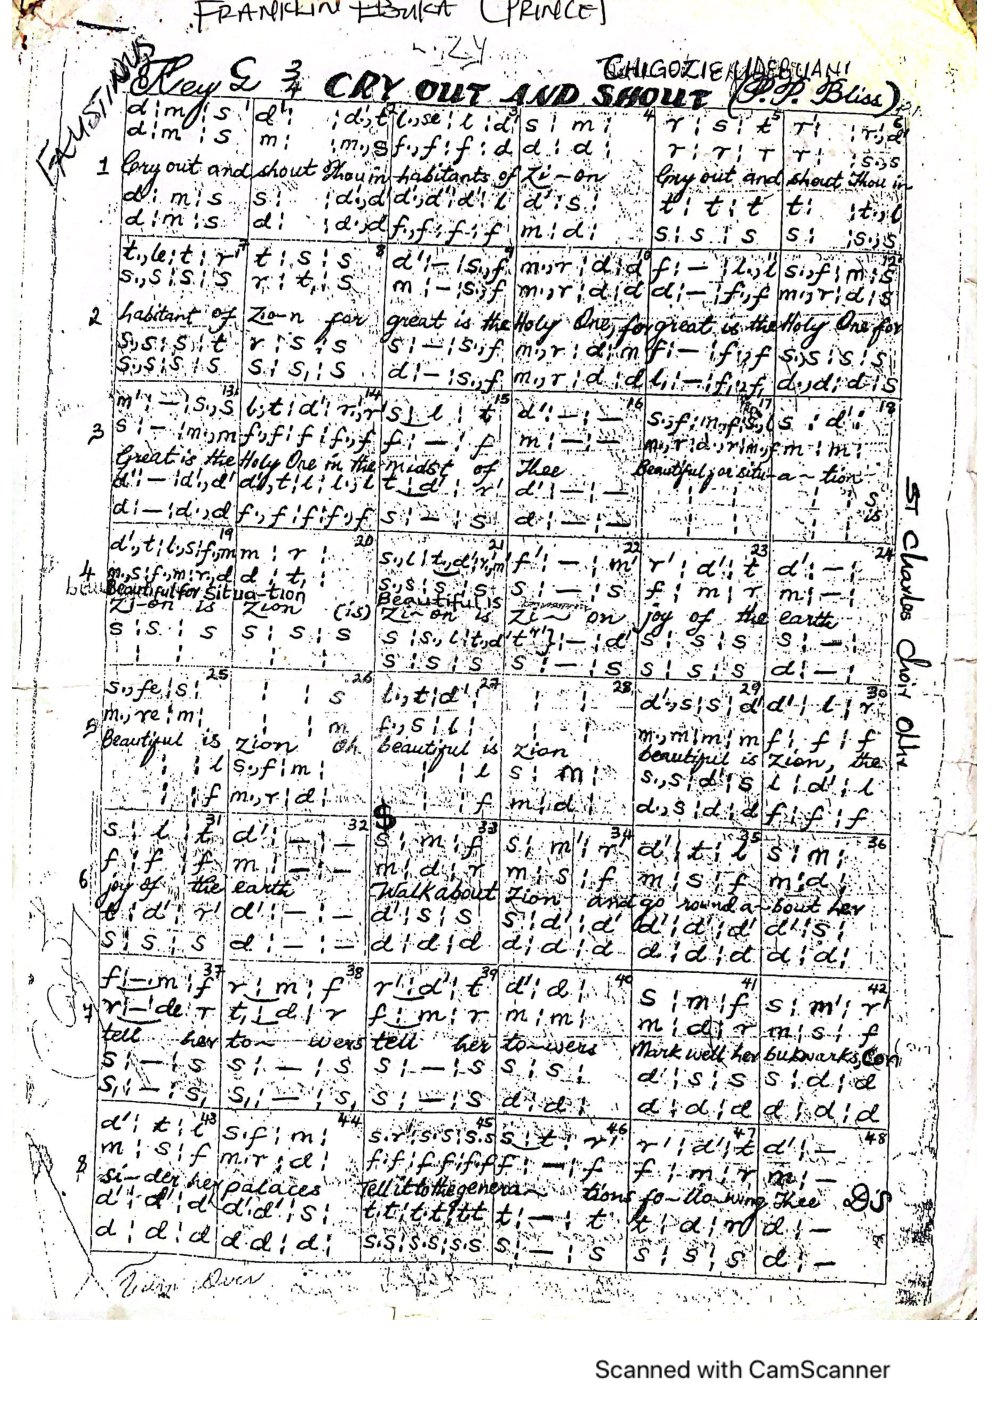 FRANKLIN EBUKA (PRINCE)
CHIGOZIE UDEQUANI
FAUSTINUS
Key E 3/4 CRY OUT AND SHOUT (P.P. Bliss)
d ¦ m ¦ s d' ¦ ¦ d'., t l., se ¦ l ¦ d' s ¦ m ¦ r ¦ s ¦ t r' ¦ ¦ r'., d'
d ¦ m ¦ s m ¦ ¦ m., s f., f ¦ f ¦ d d ¦ d ¦ r ¦ r ¦ r r ¦ ¦ s., s
1 Cry out and shout Thou in-habitants of Zi-on Cry out and shout Thou in
d ¦ m ¦ s s ¦ ¦ d'., d' d'., d' ¦ d' ¦ l d' ¦ s ¦ t ¦ t ¦ t t ¦ ¦ t., l
d ¦ m ¦ s d ¦ ¦ d., d f., f ¦ f ¦ f m ¦ d ¦ s ¦ s ¦ s s ¦ ¦ s., s
t., le ¦ t ¦ r' t ¦ s ¦ s d' ¦ — ¦ s., f m., r ¦ d ¦ d f ¦ — ¦ l., l s., f ¦ m ¦ s
s., s ¦ s ¦ s r ¦ t, ¦ s m ¦ — ¦ s., f m., r ¦ d ¦ d d ¦ — ¦ f., f m., r ¦ d ¦ s
2 habitant of Zio-n for great is the Holy One, for great is the Holy One for
s., s ¦ s ¦ t r ¦ s ¦ s s ¦ — ¦ s., f m., r ¦ d ¦ m f ¦ — ¦ f., f s., s ¦ s ¦ s
s., s ¦ s ¦ s s ¦ s, ¦ s d ¦ — ¦ s., f m., r ¦ d ¦ d l, ¦ — ¦ f., f d., d ¦ d ¦ s
m' ¦ — ¦ s., s l., t ¦ d' ¦ r'., r' s ¦ l ¦ t d' ¦ — ¦ — s., f ¦ m., f ¦ s., l s ¦ d' ¦
s ¦ — ¦ m., m f., f ¦ f ¦ f., f f ¦ — ¦ f m ¦ — ¦ — m., r ¦ d., r ¦ m., f m ¦ m ¦
3 Great is the Holy One in the midst of Thee Beautiful for situ-a~tion
d' ¦ — ¦ d'., d' d'., t ¦ l ¦ l., l t ¦ d' ¦ r' d' ¦ — ¦ — ¦ ¦ ¦ ¦ s
d ¦ — ¦ d., d f., f ¦ f ¦ f., f s ¦ — ¦ s d ¦ — ¦ — ¦ ¦ ¦ ¦ is
d'., t ¦ l., s ¦ f., m m ¦ r ¦ s., l ¦ t., d' ¦ r'., m' f' ¦ — ¦ m' r' ¦ d' ¦ t d' ¦ — ¦
m., s ¦ f., m ¦ r., d d ¦ t, ¦ s., s ¦ s ¦ s s ¦ — ¦ s f ¦ m ¦ r m ¦ — ¦
4 Beautiful for situa-tion Beautiful is
Zi-on is Zion (is) Zi~on is Zi~on joy of the earth
s ¦ s ¦ s s ¦ s ¦ s s ¦ s., l ¦ t., d' t ¦ — ¦ d' s ¦ s ¦ s s ¦ — ¦
¦ ¦ ¦ ¦ s ¦ s ¦ s s ¦ — ¦ s s ¦ s ¦ s d ¦ — ¦
s., fe ¦ s ¦ ¦ ¦ s l., t ¦ d' ¦ ¦ ¦ d'., s ¦ s ¦ d' d' ¦ l ¦ r'
m., re ¦ m ¦ ¦ ¦ m f., s ¦ l ¦ ¦ ¦ m., m ¦ m ¦ m f ¦ f ¦ f
5 Beautiful is Zion Oh beautiful is zion beautiful is Zion, the
¦ ¦ l s., f ¦ m ¦ ¦ ¦ l s ¦ m ¦ s., s ¦ d' ¦ s l ¦ d' ¦ l
¦ ¦ f m., r ¦ d ¦ ¦ ¦ f m ¦ d ¦ d., s ¦ d ¦ d f ¦ f ¦ f
$
s ¦ l ¦ t d' ¦ — ¦ — s ¦ m ¦ f s ¦ m' ¦ r' d' ¦ t ¦ l s ¦ m ¦
f ¦ f ¦ f m ¦ — ¦ — m ¦ d ¦ r m ¦ s ¦ f m ¦ s ¦ f m ¦ d ¦
6 joy of the earth Walk about Zion and go round a~bout her
t ¦ d' ¦ r' d' ¦ — ¦ — d' ¦ s ¦ s s ¦ d' ¦ d' d' ¦ d' ¦ d' d' ¦ s ¦
s ¦ s ¦ s d ¦ — ¦ — d ¦ d ¦ d d ¦ d ¦ d d ¦ d ¦ d d ¦ d ¦
f ¦ — m ¦ f r ¦ m ¦ f r' ¦ d' ¦ t d' ¦ d ¦ s ¦ m ¦ f s ¦ m' ¦ r'
r ¦ — de ¦ r t, ¦ d ¦ r f ¦ m ¦ r m ¦ m ¦ m ¦ d ¦ r m ¦ s ¦ f
7 tell her to~wers tell her to~wers Mark well her bulwarks, Con
s ¦ — ¦ s s ¦ — ¦ s s ¦ — ¦ s s ¦ s ¦ d' ¦ s ¦ s s ¦ d ¦ d
s, ¦ — ¦ s, s, ¦ — ¦ s, s ¦ — ¦ s d ¦ d ¦ d ¦ d ¦ d d ¦ d ¦ d
d' ¦ t ¦ l s.f ¦ m ¦ s.r' ¦ s.s ¦ s.s s ¦ t ¦ r' r' ¦ d' ¦ t d' ¦ —
m ¦ s ¦ f m.r ¦ d ¦ f.f ¦ f.f ¦ f.f f ¦ — ¦ f f ¦ m ¦ r m ¦ —
8 Si-der her palaces Tell it to the genera~tions fo~llo-wing Thee DS
d' ¦ d' ¦ d' d'.d' ¦ s ¦ t.t ¦ t.t ¦ t.t t ¦ — ¦ t t ¦ d ¦ r d ¦ —
d ¦ d ¦ d d.d ¦ d ¦ s.s ¦ s.s ¦ s.s s ¦ — ¦ s s ¦ s ¦ s d ¦ —
Turn Over
ST Charles choir
Scanned with CamScanner